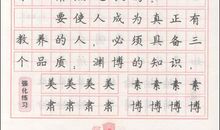 要使人成为真正有
教养的人,必须具备三
个品质:渊博的知识,
强化练习
美美美美 素素素
肃肃肃肃 博博博